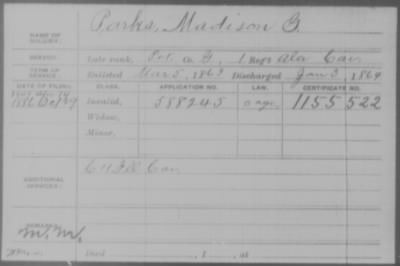 Parks, Madison G.
NAME OF SOLDIER:
SERVICE: Late rank, Pvt Co. G, 1 Reg't Ala Cav
TERM OF SERVICE: Enlisted Mar 5, 1863 Discharged Jan 3, 1864
DATE OF FILING. CLASS. APPLICATION NO. LAW. CERTIFICATE NO.
1886 Invalid, 588245 1155522
Widow,
Minor,
ADDITIONAL SERVICES: C Ill Cav
REMARKS: M. M.
Died